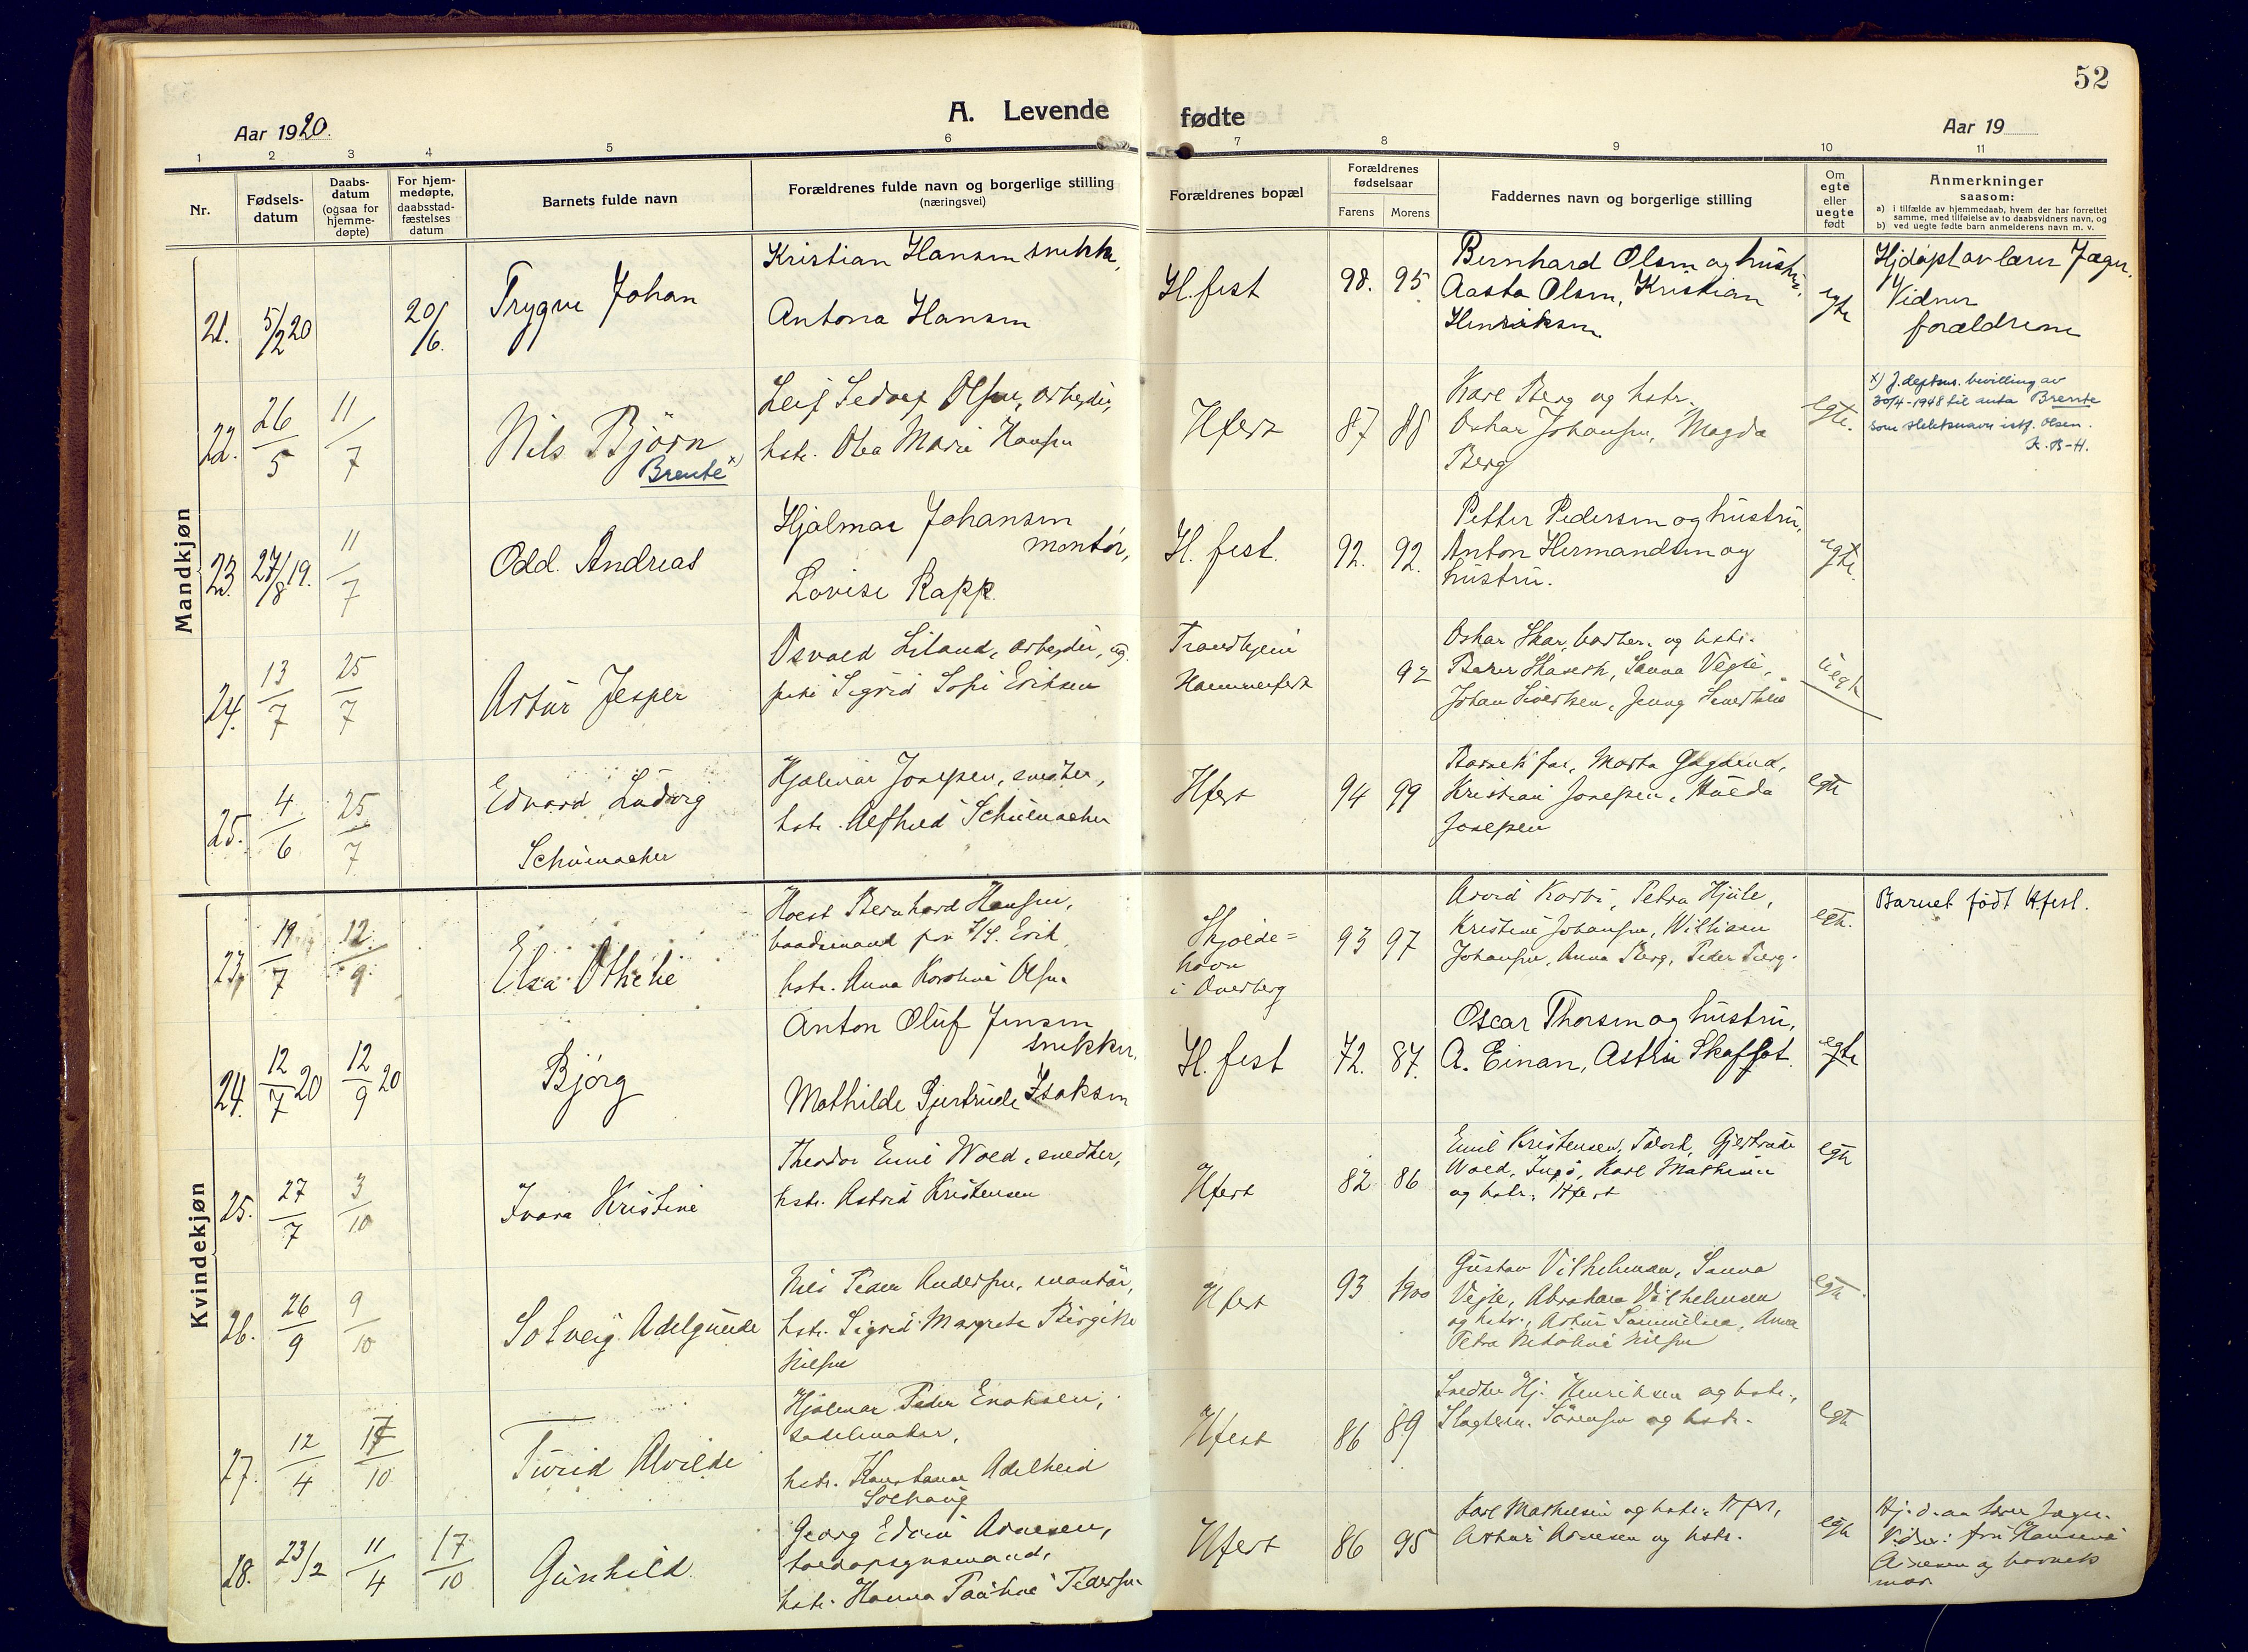 52
A. Levende fødte
Aar 1920.
Aar 19
1 2 3 4 5 6 7 8 9 10 11
Nr.
Fødsels-
datum
Daabs-
datum
(ogsaa for
hjemme-
døpte)
For hjem-
medøpte,
daabsstad-
fæstelses
datum
Barnets fulde navn
Forældrenes fulde navn og borgerlige stilling
(næringsvei)
Forældrenes bopæl
Forældrenes
fødselsaar
Farens Morens
Faddernes navn og borgerlige stilling
Om
egte
eller
uegte
født
Anmerkninger
saasom:
a) i tilfælde av hjemmedaab, hvem der har forrettet
samme, med tilføielse av to daabsvidners navn, og
b) ved uegte fødte barn anmelderens navn m. v.
Mandkjøn
21. 5/2 20 20/6.
Trygve Johan
Kristian Hansen snekker,
Antona Hansen
H.fest 98. 95
Bernhard Olsen og hustru,
Aasta Olsen, Kristian
Henriksen
egte
Hjdøpt av lærer Jæger.
Vidner
forældrene
22. 26/5 11/7
Nils Björn
Brente x)
Leif Olsen, arbeider,
hstr. Olea Marie Hansen
Hfest 87 88
Karl Berg og hstr.
Oskar Johansen, Magda
Berg
egte.
x) J.deptms. bevilling av
30/4-1948 til anta Brente
som slektsnavn istf. Olsen.
K.B-H.
23. 27/8 19. 11/7
Odd Andreas
Hjalmar Johansen
montør,
Lovise Rapp
H. fest. 92. 92.
Petter Pedersen og hustru,
Anton Hermandsen og
hustru.
egte.
24. 13/7 25/7
Artur Jesper
Osvald Liland, arbeider, og
pike Sigrid Sofie Eriksen
Trondhjem
Hammerfest
92
Oskar Skar, og hstr.
Sanna Vegle,
Johan Sivertsen, Jenny
uegte
25. 4/6 25/7
Edvard Ludvig
Schumacher
Hjalmar Josefsen, snedker,
hstr. Alfhild Schumacher
Hfest 94 99
Barnets far, Marta
Kristian Josefsen, Hulda
Josefsen
egte
Kvindekjøn
23, 19/7 12/9
Elsa Othelie
Bernhard Hansen,
baadsmand paa S/S. Erik
hstr. Anna Karoline Olsen
Skjolde=
havn
i Overberg
93 97
Arvid Petra Hjule,
Kristine Johansen, William
Johansen, Anna Berg, Peder Berg.
egte.
Barnet født H.fest.
24. 12/7 20 12/9 20
Bjørg
Anton Oluf Jensen
snekker,
Mathilde Gjertrude Isaksen
H. fest 72. 87.
Oscar Thorsen og hustru,
A. Einan, Astri
egte
25. 27/7 3/10
Ivara Kristine
Theodor Emil Wold, snedker,
hstr. Astrid Kristensen
Hfest 82 86
Emil Kristensen, Gjertrude
Wold, Ingø, Karl Mathisen
og hstr., Hfest
egte
26. 26/9 9/10
Solveig Adelgunde
Nils Peder Andersen, montør,
hstr. Sigrid Margrete Birgitte
Nilsen
Hfest 93 1900
Gustav Vilhelmsen, Sanna
Vegle, Abraham Vilhelmsen
og hstr., Artur Anna
Petra Nilsen
egte.
27. 12/4 17/10
Turid Alvilde
Hjalmar Peder Enoksen,
sadelmaker,
hstr. Konstanse Adelheid
Solhaug
Hfest 86 89
Snedker Hj. Henriksen og hstr.,
Slagterm. Sörensen og hstr.
egte
28. 23/2 11/4 17/10
Gunhild
Georg Edvin Arnesen,
toldopsynsmand,
hstr. Hanna Pauline Pedersen
Hfest 86 95
Karl Mathisen og hstr., Hfest,
Arthur Arnesen og hstr.
egte
Hj.d. av lærer Jæger.
Vidner: fru
Arnesen og barnets
mor